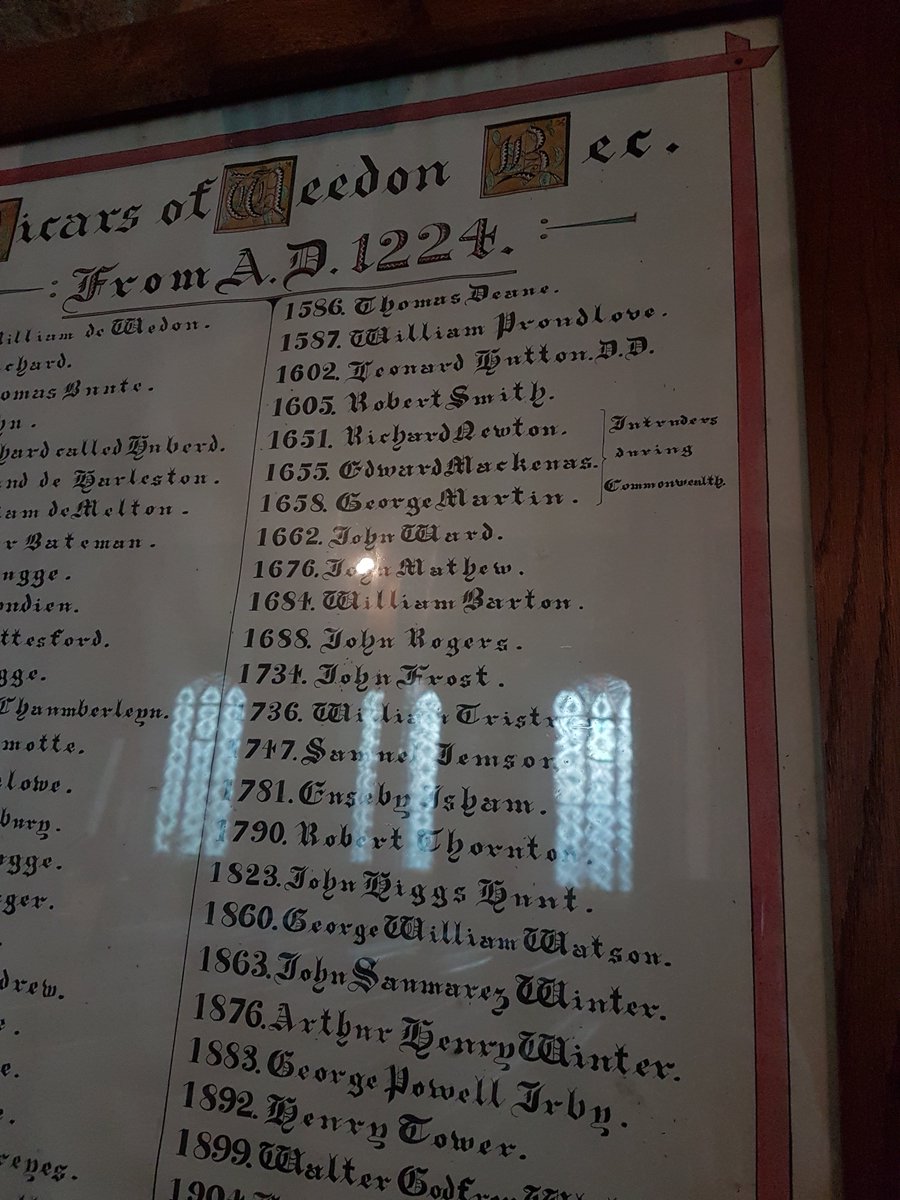 Vicars of Weedon Bec.
From A.D. 1224.
William de Wedon.
omas Bunte.
hard called Huberd.
nd de Harleston.
iam de Melton.
r Bateman.
ngge.
ondien.
ttesford.
gge.
Chaumberleyn.
motte.
lowe.
bury.
ngge.
ger.
drew.
reyes.
1586. Thomas Deane.
1587. William Proudlove.
1602. Leonard Hutton. D.D.
1605. Robert Smith.
1651. Richard Newton.
1655. Edward Mackenas.
1658. George Martin.
Intruders
during
Commonwealth.
1662. John Ward.
1676. John Mathew.
1684. William Barton.
1688. John Rogers.
1734. John Frost.
1736. William Tristram.
1747. Samuel Jemson.
1781. Euseby Isham.
1790. Robert Thornton.
1823. John Higgs Hunt.
1860. George William Watson.
1863. John Saumarez Winter.
1876. Arthur Henry Winter.
1883. George Powell Irby.
1892. Henry Tower.
1899. Walter Godfrey
1904.